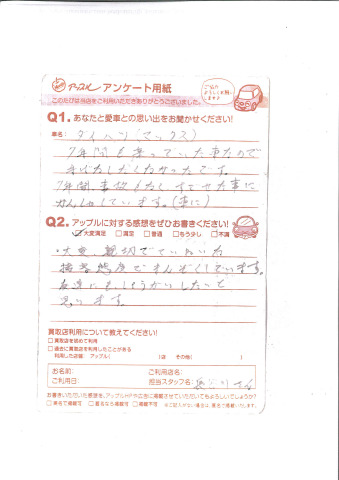 アップル アンケート用紙
ご協力よろしくお願いします♪
このたびは当店をご利用いただきありがとうございました。
Q1. あなたと愛車との思い出をお聞かせください!
車名: ダイハツ(マックス)
7年間も乗っていた車なので
手ばなしたくなかったです。
7年間事故もなくすごせた事に
かんしゃしています。(車に)
Q2. アップルに対する感想をぜひお書きください!
☑大変満足 □満足 □普通 □もう少し □不満
・大変、親切でていねいな
接客態度でまんぞくしています。
友達にもしょうかいしたいと
思います。
買取店利用について教えてください!
□買取店を初めて利用
□過去に買取店を利用したことがある
利用した店舗: アップル( )店 その他( )
お名前: ご利用店名:
ご利用日: 担当スタッフ名: さん
お書きいただいた感想を、アップルHPや広告に掲載させていただいてもよろしいでしょうか?
□実名で掲載可 □匿名なら掲載可 □掲載不可 ※ご記入がない場合は、匿名で掲載いたします。